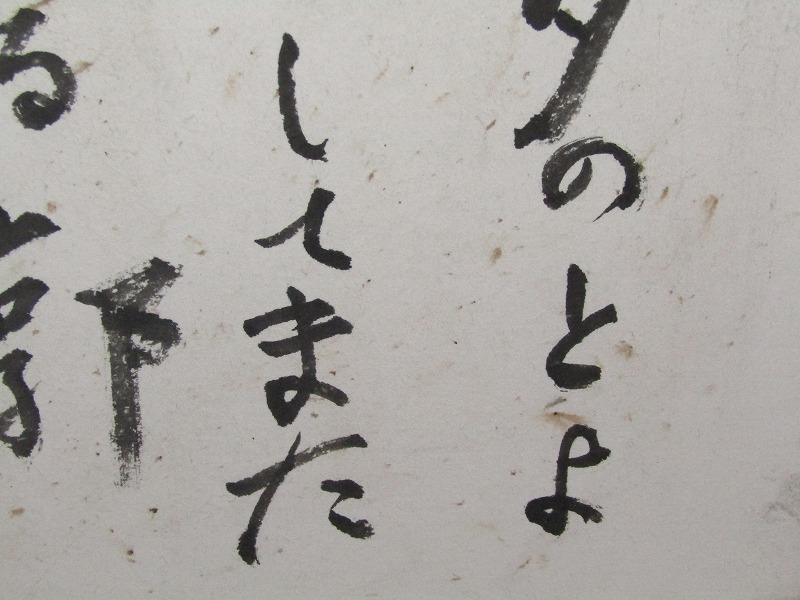 のとよ
してまた
下
る